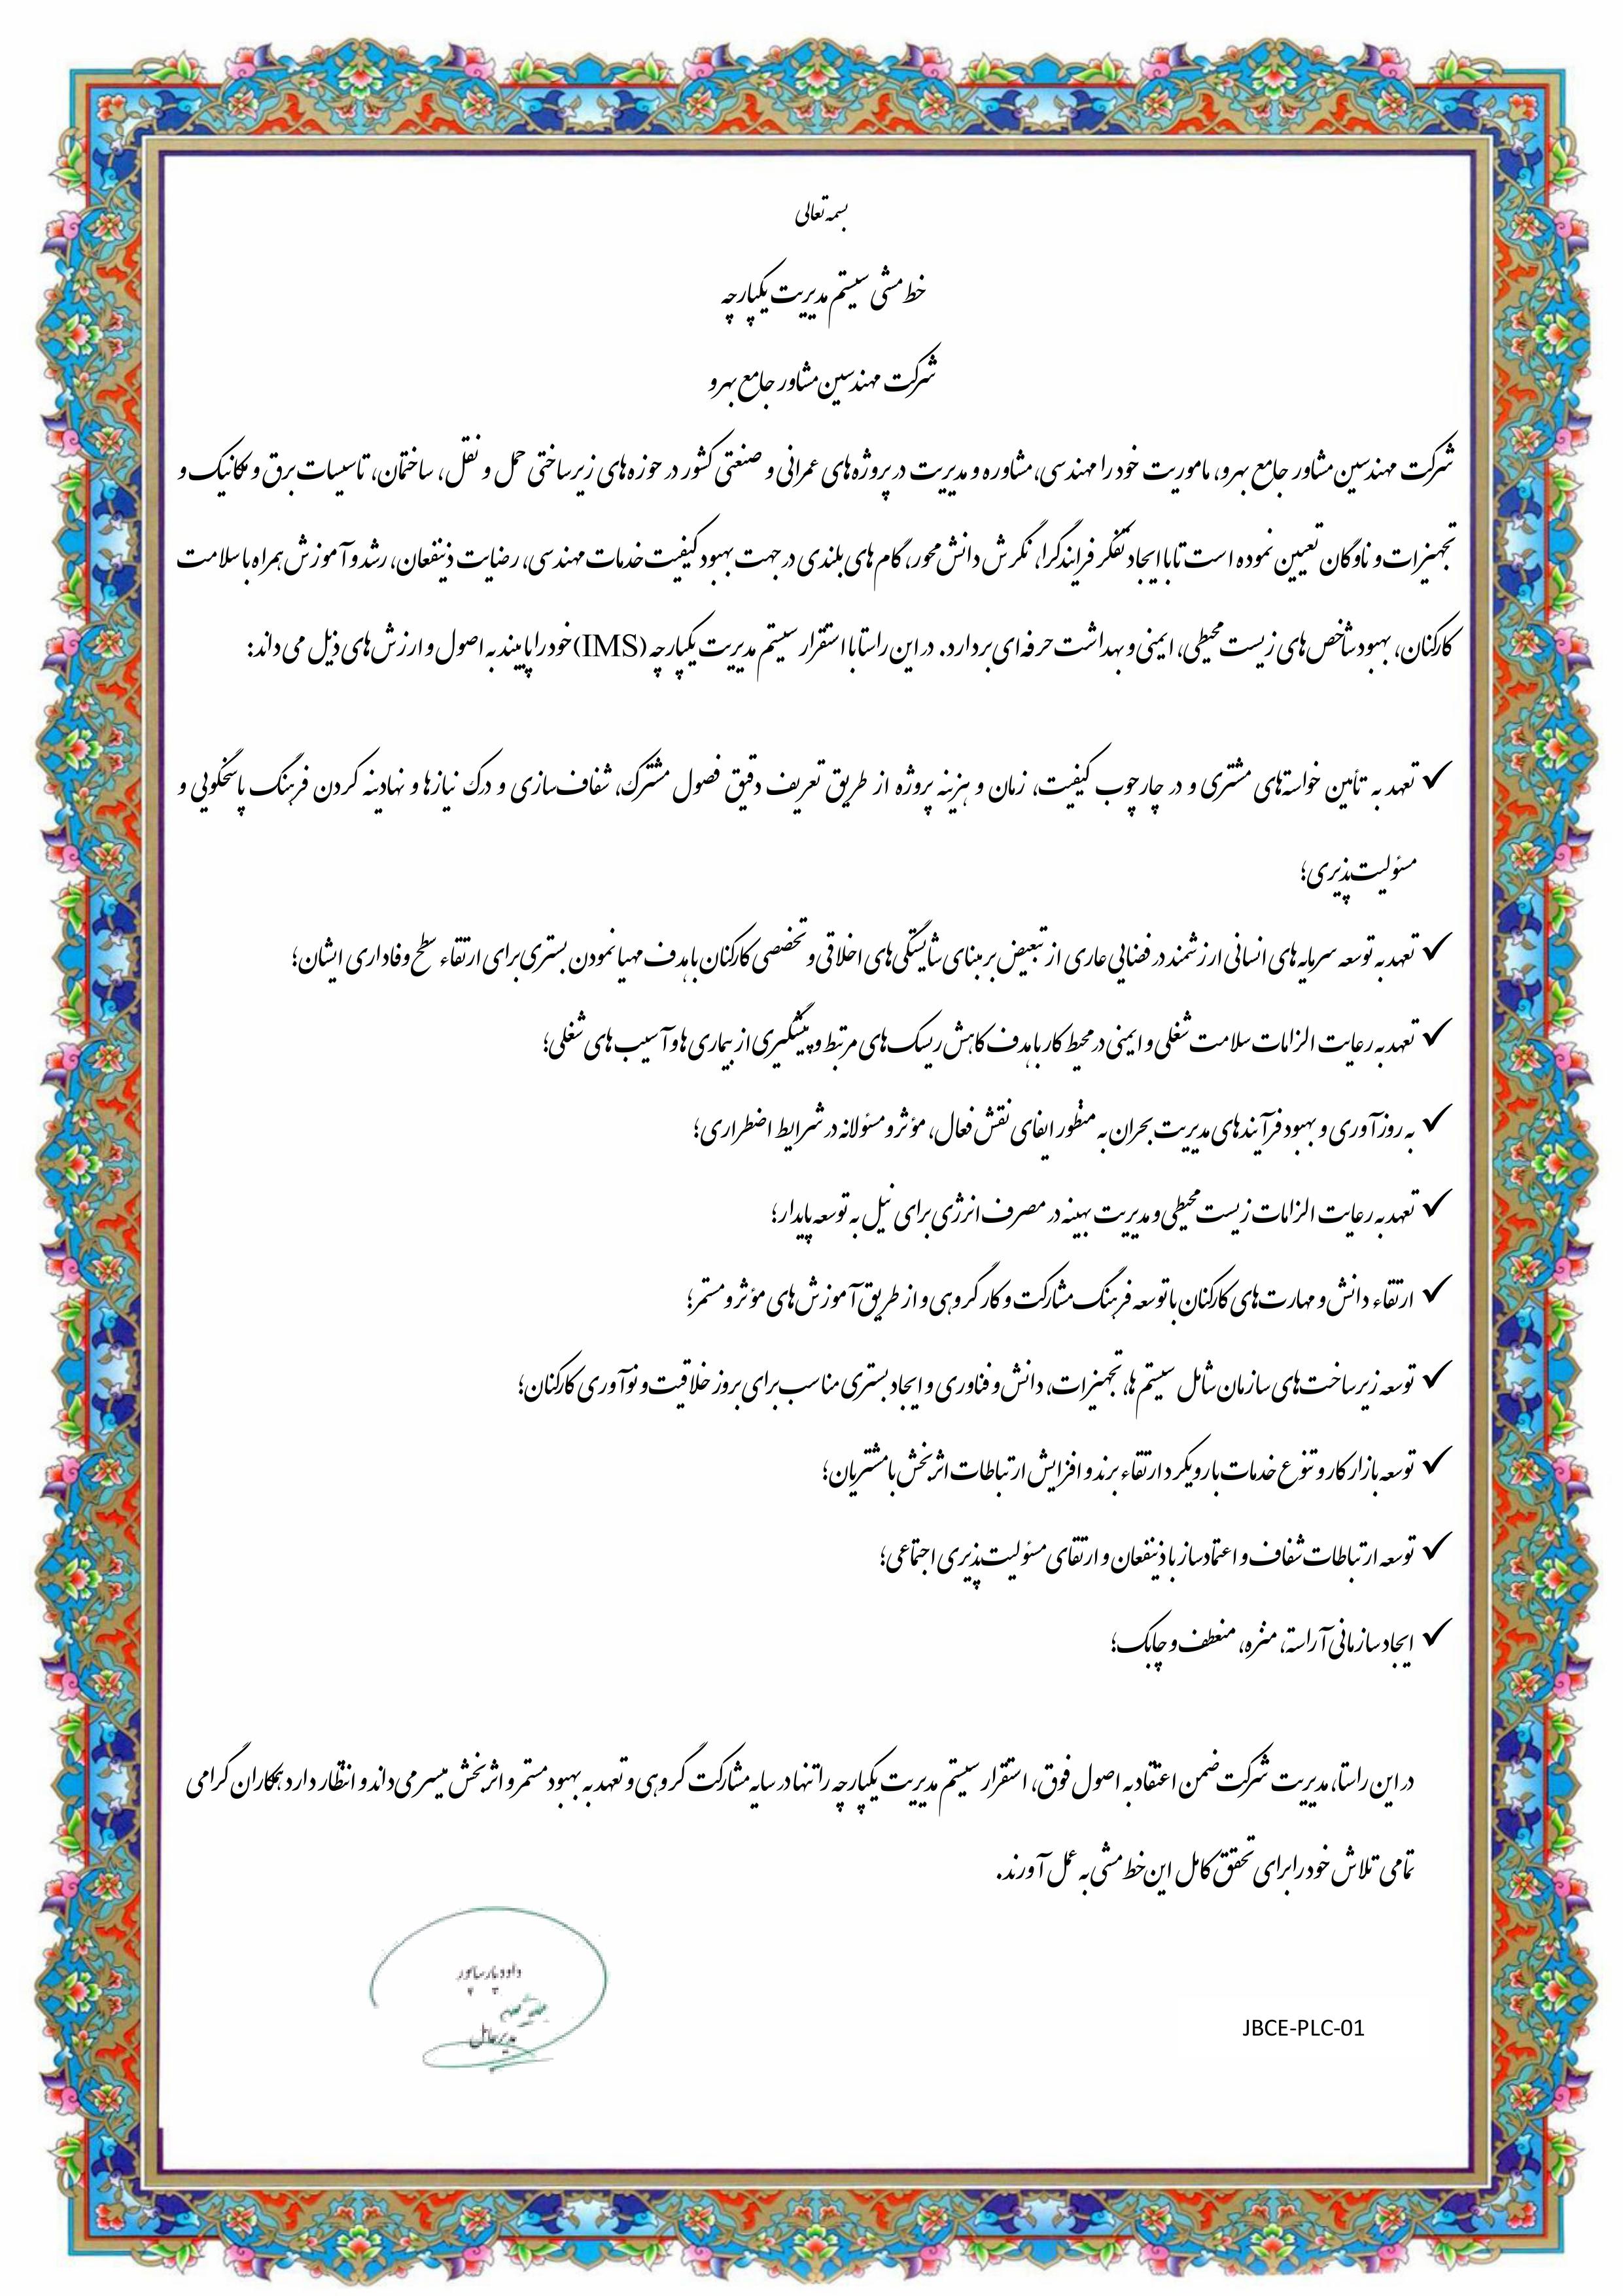 بسمه تعالی
خط مشی سیستم مدیریت یکپارچه
شرکت مهندسین مشاور جامع بهرو
شرکت مهندسین مشاور جامع بهرو، ماموریت خود را مهندسی، مشاوره و مدیریت در پروژه های عمرانی و صنعتی کشور در حوزه های زیرساختی حمل و نقل، ساختمان، تاسیسات برق و مکانیک و
تجهیزات و ناوگان تعیین نموده است تا با ایجاد تفکر فرایندگرا، نگرش دانش محور، گام های بلندی در جهت بهبود کیفیت خدمات مهندسی، رضایت ذینفعان، رشد و آموزش همراه با سلامت
کارکنان، بهبود شاخص های زیست محیطی، ایمنی و بهداشت حرفه ای بردارد. در این راستا با استقرار سیستم مدیریت یکپارچه (IMS) خود را پایبند به اصول و ارزش های ذیل می داند:
✓ تعهد به تأمین خواسته‌های مشتری و در چارچوب کیفیت، زمان و هزینه پروژه از طریق تعریف دقیق فصول مشترک، شفاف‌سازی و درک نیازها و نهادینه کردن فرهنگ پاسخگویی و
مسئولیت‌پذیری؛
✓ تعهد به توسعه سرمایه های انسانی ارزشمند در فضایی عاری از تبعیض بر مبنای شایستگی های اخلاقی و تخصصی کارکنان با هدف مهیا نمودن بستری برای ارتقاء سطح وفاداری ایشان؛
✓ تعهد به رعایت الزامات سلامت شغلی و ایمنی در محیط کار با هدف کاهش ریسک های مرتبط و پیشگیری از بیماری ها و آسیب های شغلی؛
✓ به روزآوری و بهبود فرآیندهای مدیریت بحران به منظور ایفای نقش فعال، مؤثر و مسئولانه در شرایط اضطراری؛
✓ تعهد به رعایت الزامات زیست محیطی و مدیریت بهینه در مصرف انرژی برای نیل به توسعه پایدار؛
✓ ارتقاء دانش و مهارت‌های کارکنان با توسعه فرهنگ مشارکت و کار گروهی و از طریق آموزش‌های مؤثر و مستمر؛
✓ توسعه زیرساخت‌های سازمان شامل سیستم ها، تجهیزات، دانش و فناوری و ایجاد بستری مناسب برای بروز خلاقیت و نوآوری کارکنان؛
✓ توسعه بازار کار و تنوع خدمات با رویکرد ارتقاء برند و افزایش ارتباطات اثربخش با مشتریان؛
✓ توسعه ارتباطات شفاف و اعتمادساز با ذینفعان و ارتقای مسئولیت‌پذیری اجتماعی؛
✓ ایجاد سازمانی آراسته، منزه، منعطف و چابک؛
در این راستا، مدیریت شرکت ضمن اعتقاد به اصول فوق، استقرار سیستم مدیریت یکپارچه را تنها در سایه مشارکت گروهی و تعهد به بهبود مستمر و اثربخش میسر می داند و انتظار دارد همکاران گرامی
تمامی تلاش خود را برای تحقق کامل این خط مشی به عمل آورند.
داود پارساپور
مدیرعامل
JBCE-PLC-01